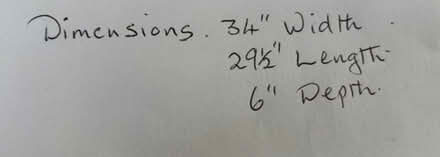 Dimensions. 34" Width
29½" Length
6" Depth.